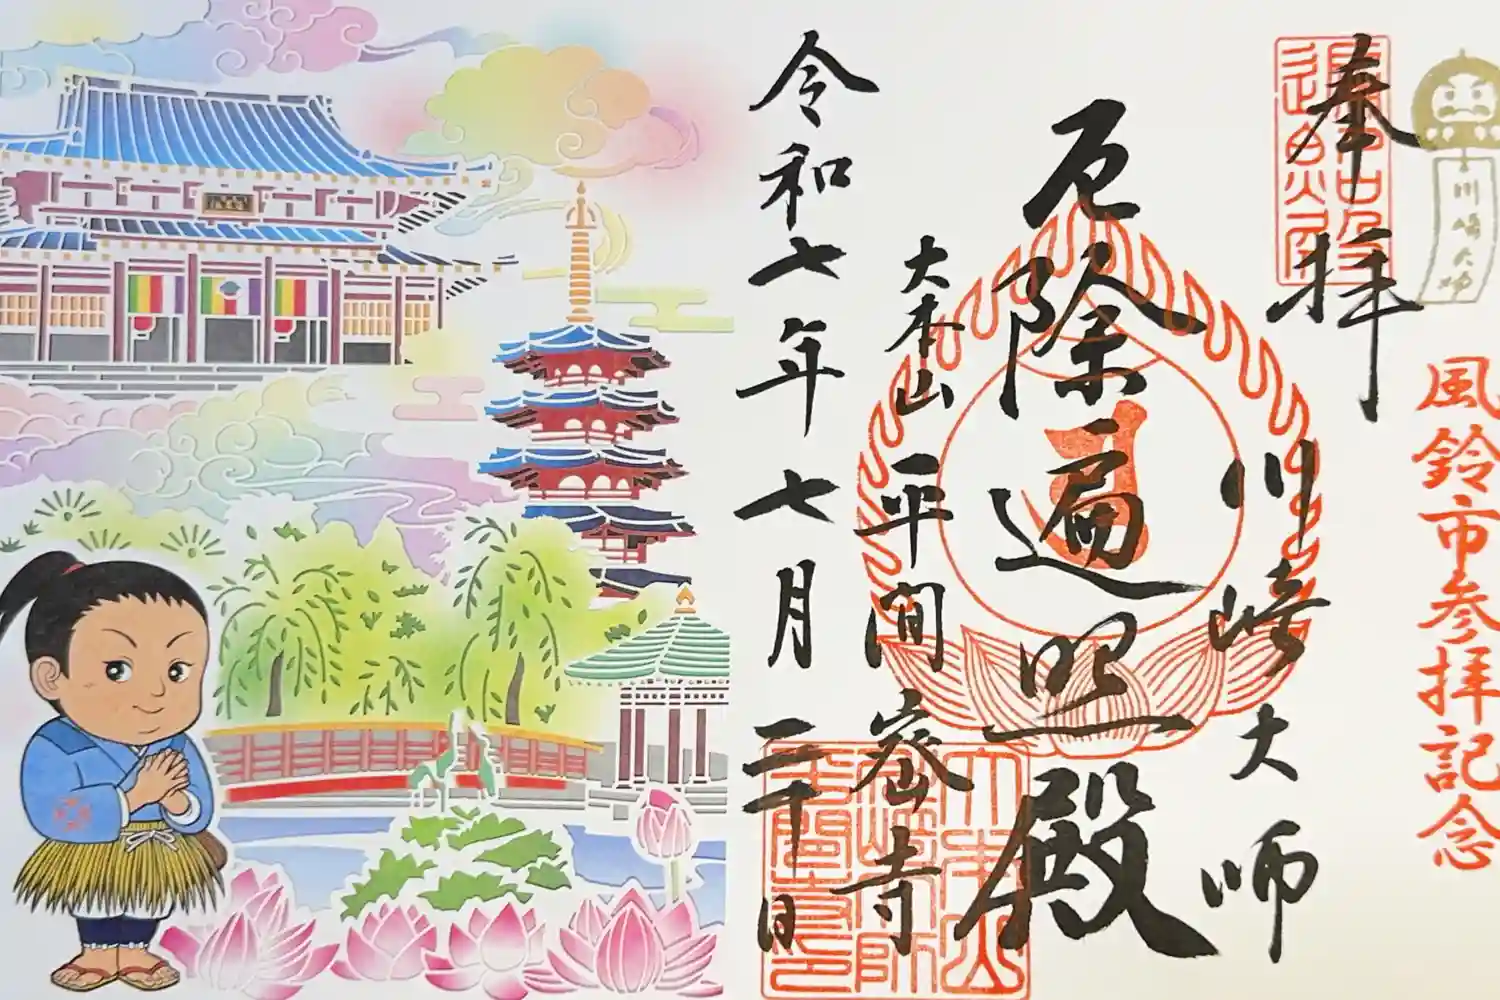 川崎大師
風鈴市参拝記念
奉拝
川崎大師
厄除遍照殿
大本山 平間密寺
令和七年七月二十日